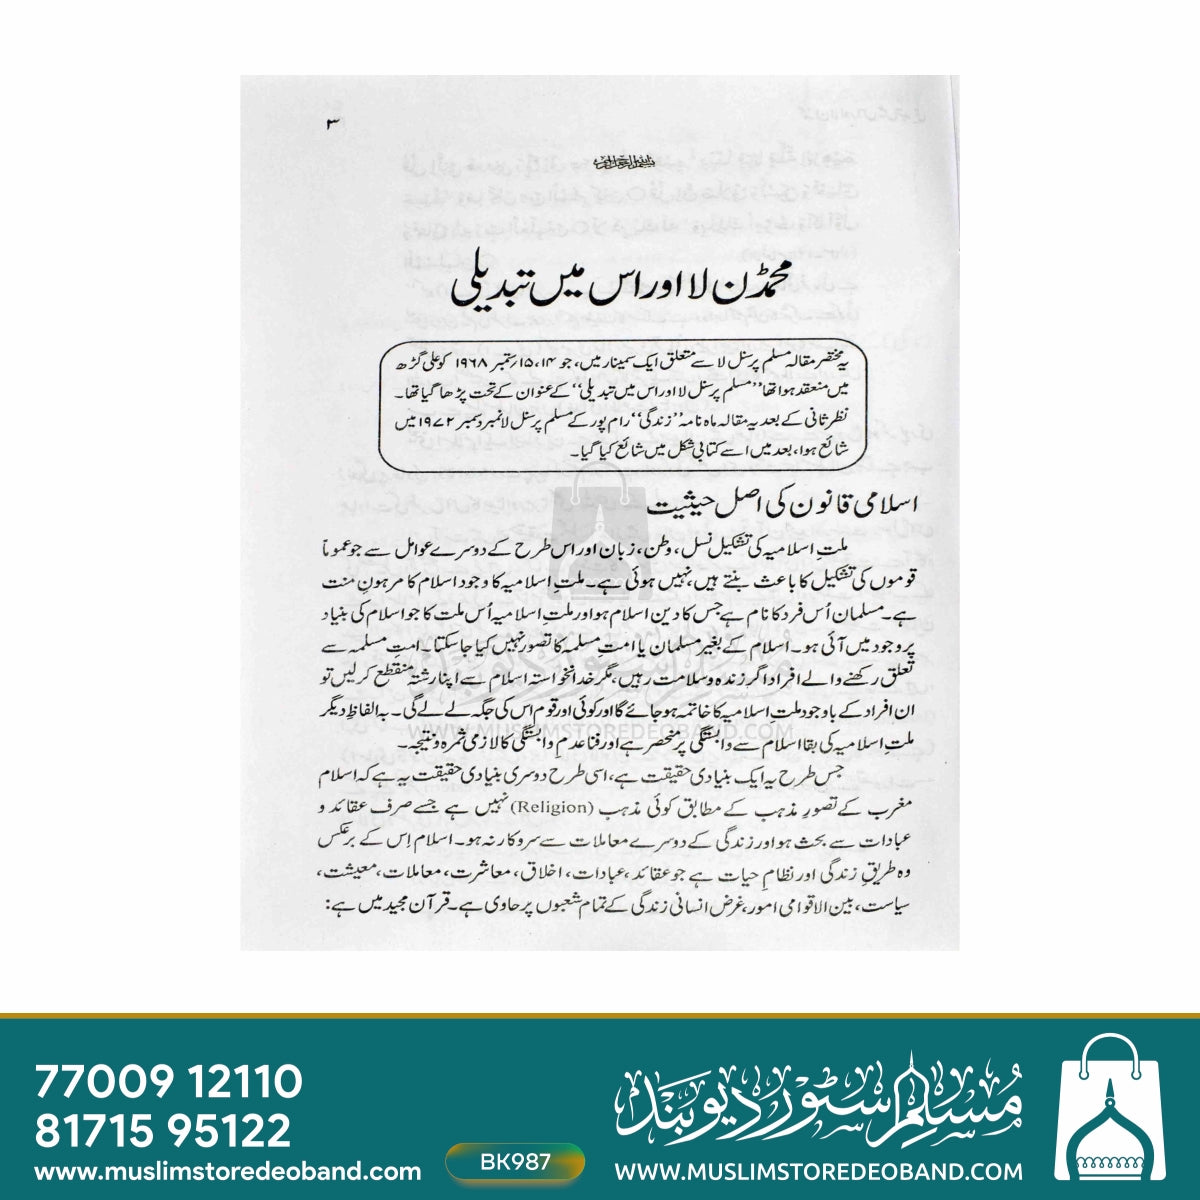 ۳
بسم اللہ الرحمن الرحیم
محمڈن لا اور اس میں تبدیلی
یہ مختصر مقالہ مسلم پرسنل لا سے متعلق ایک سمینار میں، جو ۱۴، ۱۵/ستمبر ۱۹۶۸ کو علی گڑھ
میں منعقد ہوا تھا ’’مسلم پرسنل لا اور اس میں تبدیلی‘‘ کے عنوان کے تحت پڑھا گیا تھا۔
نظر ثانی کے بعد یہ مقالہ ماہ نامہ ’’زندگی‘‘ رام پور کے مسلم پرسنل لا نمبر دسمبر ۱۹۷۲ میں
شائع ہوا، بعد میں اسے کتابی شکل میں شائع کیا گیا۔
اسلامی قانون کی اصل حیثیت
ملتِ اسلامیہ کی تشکیل نسل، وطن، زبان اور اس طرح کے دوسرے عوامل سے جو عموماً
قوموں کی تشکیل کا باعث بنتے ہیں، نہیں ہوئی ہے۔ ملتِ اسلامیہ کا وجود اسلام کا مرہونِ منت
ہے۔ مسلمان اُس فرد کا نام ہے جس کا دین اسلام ہو اور ملتِ اسلامیہ اُس ملت کا جو اسلام کی بنیاد
پر وجود میں آئی ہو۔ اسلام کے بغیر مسلمان یا امتِ مسلمہ کا تصور نہیں کیا جا سکتا۔ امتِ مسلمہ سے
تعلق رکھنے والے افراد اگر زندہ و سلامت رہیں، مگر خدانخواستہ اسلام سے اپنا رشتہ منقطع کر لیں تو
ان افراد کے باوجود ملتِ اسلامیہ کا خاتمہ ہو جائے گا اور کوئی اور قوم اس کی جگہ لے لے گی۔ بہ الفاظِ دیگر
ملتِ اسلامیہ کی بقا اسلام سے وابستگی پر منحصر ہے اور فنا عدمِ وابستگی کا لازمی ثمرہ و نتیجہ۔
جس طرح یہ ایک بنیادی حقیقت ہے، اسی طرح دوسری بنیادی حقیقت یہ ہے کہ اسلام
مغرب کے تصورِ مذہب کے مطابق کوئی مذہب (Religion) نہیں ہے جسے صرف عقائد و
عبادات سے بحث ہو اور زندگی کے دوسرے معاملات سے سروکار نہ ہو۔ اسلام اِس کے برعکس
وہ طریقِ زندگی اور نظامِ حیات ہے جو عقائد، عبادات، اخلاق، معاشرت، معاملات، معیشت،
سیاست، بین الاقوامی امور، غرض انسانی زندگی کے تمام شعبوں پر حاوی ہے۔ قرآن مجید میں ہے:
مسلم سٹور دیوبند
WWW.MUSLIMSTOREDEOBAND.COM
77009 12110
81715 95122
www.muslimstoredeoband.com
BK987
مسلم سٹور دیوبند
WWW.MUSLIMSTOREDEOBAND.COM